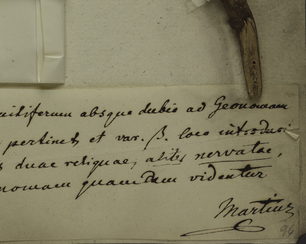 absque dubio ad Geonomam
pertinet et var. β. loco introduci
duae reliquae, alibi nervatae,
quamdam videntur
Martius